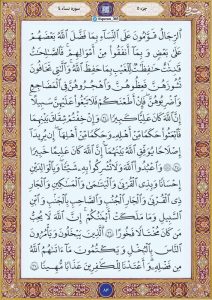 جزء ۵
سوره نساء ۴
ٱلرِّجَالُ قَوَّٰمُونَ عَلَى ٱلنِّسَآءِ بِمَا فَضَّلَ ٱللَّهُ بَعْضَهُمْ
عَلَىٰ بَعْضٍ وَبِمَآ أَنفَقُوا۟ مِنْ أَمْوَٰلِهِمْ فَٱلصَّٰلِحَٰتُ
قَٰنِتَٰتٌ حَٰفِظَٰتٌ لِّلْغَيْبِ بِمَا حَفِظَ ٱللَّهُ وَٱلَّٰتِى تَخَافُونَ
نُشُوزَهُنَّ فَعِظُوهُنَّ وَٱهْجُرُوهُنَّ فِى ٱلْمَضَاجِعِ
وَٱضْرِبُوهُنَّ فَإِنْ أَطَعْنَكُمْ فَلَا تَبْغُوا۟ عَلَيْهِنَّ سَبِيلًا
إِنَّ ٱللَّهَ كَانَ عَلِيًّا كَبِيرًا ٣٤ وَإِنْ خِفْتُمْ شِقَاقَ بَيْنِهِمَا
فَٱبْعَثُوا۟ حَكَمًا مِّنْ أَهْلِهِۦ وَحَكَمًا مِّنْ أَهْلِهَآ إِن يُرِيدَآ
إِصْلَٰحًا يُوَفِّقِ ٱللَّهُ بَيْنَهُمَآ إِنَّ ٱللَّهَ كَانَ عَلِيمًا خَبِيرًا
٣٥ وَٱعْبُدُوا۟ ٱللَّهَ وَلَا تُشْرِكُوا۟ بِهِۦ شَيْـًٔا وَبِٱلْوَٰلِدَيْنِ
إِحْسَٰنًا وَبِذِى ٱلْقُرْبَىٰ وَٱلْيَتَٰمَىٰ وَٱلْمَسَٰكِينِ وَٱلْجَارِ
ذِى ٱلْقُرْبَىٰ وَٱلْجَارِ ٱلْجُنُبِ وَٱلصَّاحِبِ بِٱلْجَنۢبِ وَٱبْنِ
ٱلسَّبِيلِ وَمَا مَلَكَتْ أَيْمَٰنُكُمْ إِنَّ ٱللَّهَ لَا يُحِبُّ
مَن كَانَ مُخْتَالًا فَخُورًا ٣٦ ٱلَّذِينَ يَبْخَلُونَ وَيَأْمُرُونَ
ٱلنَّاسَ بِٱلْبُخْلِ وَيَكْتُمُونَ مَآ ءَاتَىٰهُمُ ٱللَّهُ
مِن فَضْلِهِۦ وَأَعْتَدْنَا لِلْكَٰفِرِينَ عَذَابًا مُّهِينًا ٣٧
۸۴